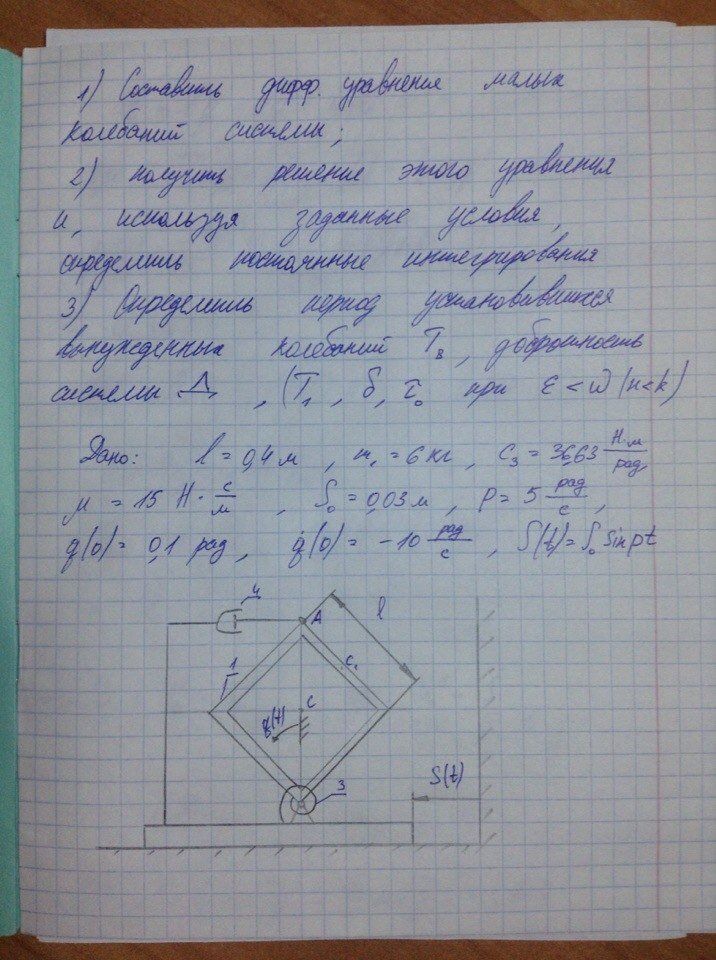 1) Составить дифф. уравнения малых
колебаний системы;
2) получить решение этого уравнения
и, используя заданные условия,
определить постоянные интегрирования
3) Определить период установившихся
вынужденных колебаний Tв, добротность
системы Д, (T₁, δ, τ₀ при ε < ω (n<k)
Дано: l = 0,4 м, m₁ = 6 кг, C₃ = 36,63 Н·м/рад,
μ = 15 Н·с/м, S₀ = 0,03 м, P = 5 рад/с,
q(0) = 0,1 рад, q̇(0) = -10 рад/с, S(t) = S₀ sin pt
4
A
l
1
C₁
C
q(t)
3
S(t)